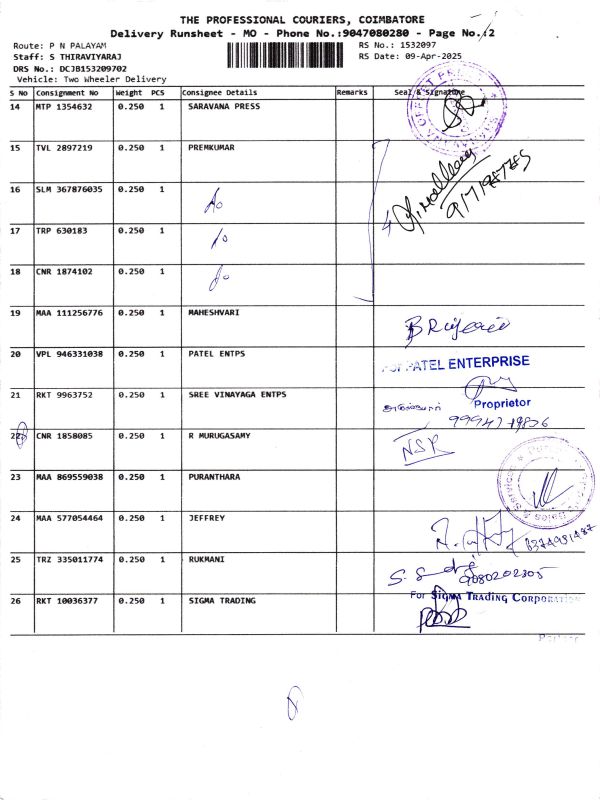 THE PROFESSIONAL COURIERS, COIMBATORE
Delivery Runsheet - MO - Phone No.:9047080280 - Page No.:2
Route: P N PALAYAM
RS No.: 1532097
Staff: S THIRAVIYARAJ
RS Date: 09-Apr-2025
DRS No.: DCJB153209702
Vehicle: Two Wheeler Delivery
S No Consignment No Weight PCS Consignee Details Remarks Seal & Signature
14 MTP 1354632 0.250 1 SARAVANA PRESS
15 TVL 2897219 0.250 1 PREMKUMAR
16 SLM 367876035 0.250 1
17 TRP 630183 0.250 1
18 CNR 1874102 0.250 1
4
19 MAA 111256776 0.250 1 MAHESHVARI
20 VPL 946331038 0.250 1 PATEL ENTPS
PATEL ENTERPRISE
21 RKT 9963752 0.250 1 SREE VINAYAGA ENTPS
Proprietor
22 CNR 1858085 0.250 1 R MURUGASAMY
NSR
23 MAA 869559038 0.250 1 PURANTHARA
24 MAA 577054464 0.250 1 JEFFREY
25 TRZ 335011774 0.250 1 RUKMANI
9080202305
26 RKT 10036377 0.250 1 SIGMA TRADING
For SIGMA TRADING CORPORATION